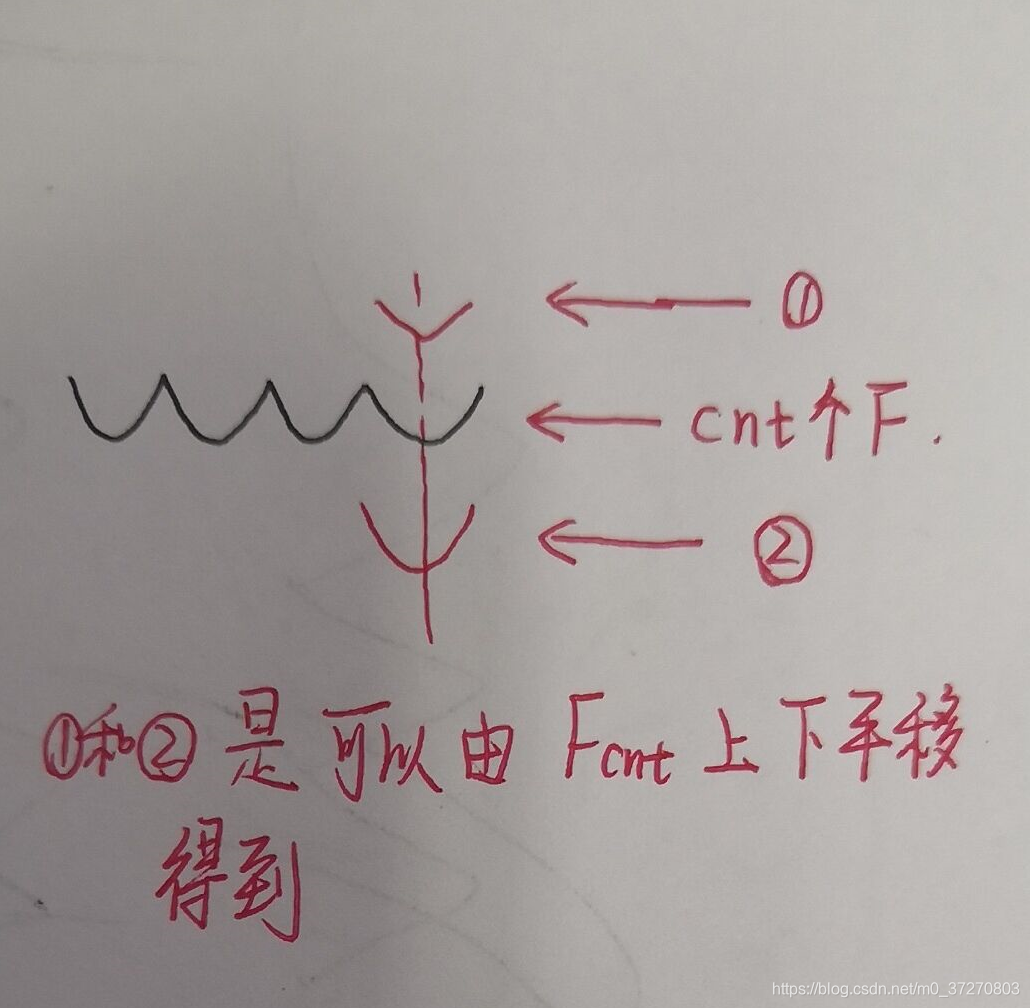 ①
cnt个F.
②
①和②是可以由Fcnt上下平移
得到
https://blog.csdn.net/m0_37270803